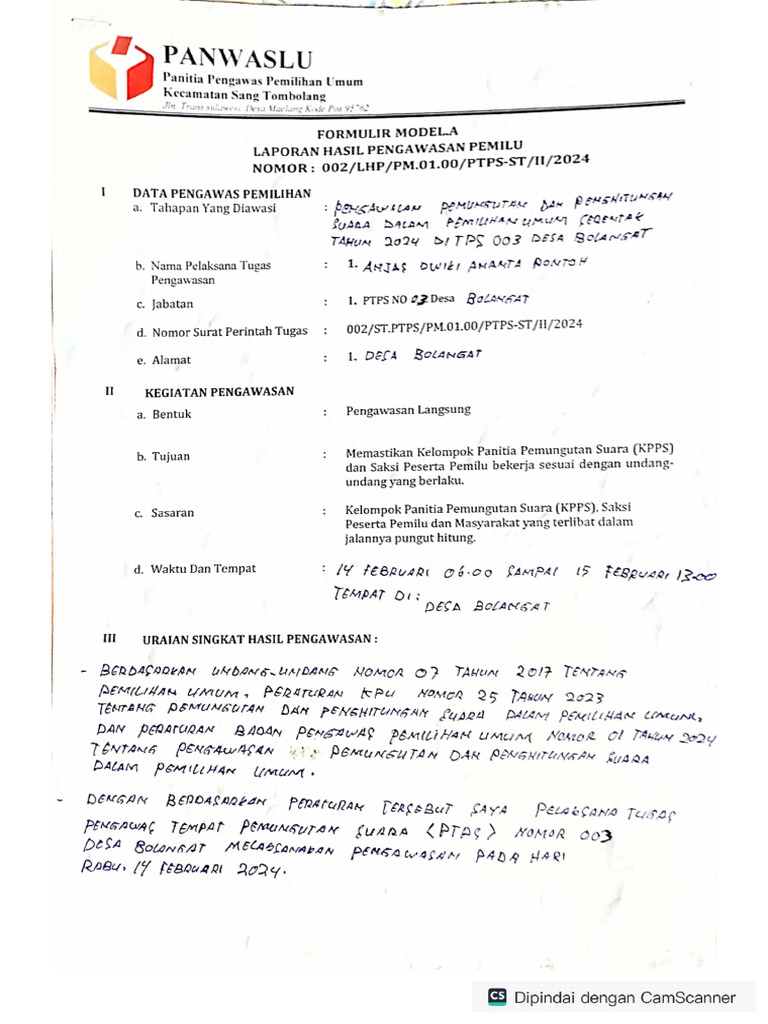 PANWASLU
Panitia Pengawas Pemilihan Umum
Kecamatan Sang Tombolang
Jln. Trans sulawesi, Desa Maelang Kode Pos 95762
FORMULIR MODEL.A
LAPORAN HASIL PENGAWASAN PEMILU
NOMOR : 002/LHP/PM.01.00/PTPS-ST/II/2024
I DATA PENGAWAS PEMILIHAN
a. Tahapan Yang Diawasi : PENGAWASAN PEMUNGUTAN DAN PENGHITUNGAN
SUARA DALAM PEMILIHAN UMUM SERENTAK
TAHUN 2024 DI TPS 003 DESA BOLANGAT
b. Nama Pelaksana Tugas : 1. ANJAS DWIKI ANANTA RONTOH
Pengawasan
c. Jabatan : 1. PTPS NO 03 Desa BOLANGAT
d. Nomor Surat Perintah Tugas : 002/ST.PTPS/PM.01.00/PTPS-ST/II/2024
e. Alamat : 1. DESA BOLANGAT
II KEGIATAN PENGAWASAN
a. Bentuk : Pengawasan Langsung
b. Tujuan : Memastikan Kelompok Panitia Pemungutan Suara (KPPS)
dan Saksi Peserta Pemilu bekerja sesuai dengan undang-
undang yang berlaku.
c. Sasaran : Kelompok Panitia Pemungutan Suara (KPPS), Saksi
Peserta Pemilu dan Masyarakat yang terlibat dalam
jalannya pungut hitung.
d. Waktu Dan Tempat : 14 FEBRUARI 06.00 SAMPAI 15 FEBRUARI 13.00
TEMPAT DI :
DESA BOLANGAT
III URAIAN SINGKAT HASIL PENGAWASAN :
- BERDASARKAN UNDANG-UNDANG NOMOR 07 TAHUN 2017 TENTANG
PEMILIHAN UMUM, PERATURAN KPU NOMOR 25 TAHUN 2023
TENTANG PEMUNGUTAN DAN PENGHITUNGAN SUARA DALAM PEMILIHAN UMUM,
DAN PERATURAN BADAN PENGAWAS PEMILIHAN UMUM NOMOR 01 TAHUN 2024
TENTANG PENGAWASAN PEMUNGUTAN DAN PENGHITUNGAN SUARA
DALAM PEMILIHAN UMUM.
- DENGAN BERDASARKAN PERATURAN TERSEBUT SAYA PELAKSANA TUGAS
PENGAWAS TEMPAT PEMUNGUTAN SUARA (PTPS) NOMOR 003
DESA BOLANGAT MELAKSANAKAN PENGAWASAN PADA HARI
RABU, 14 FEBRUARI 2024.
CS Dipindai dengan CamScanner